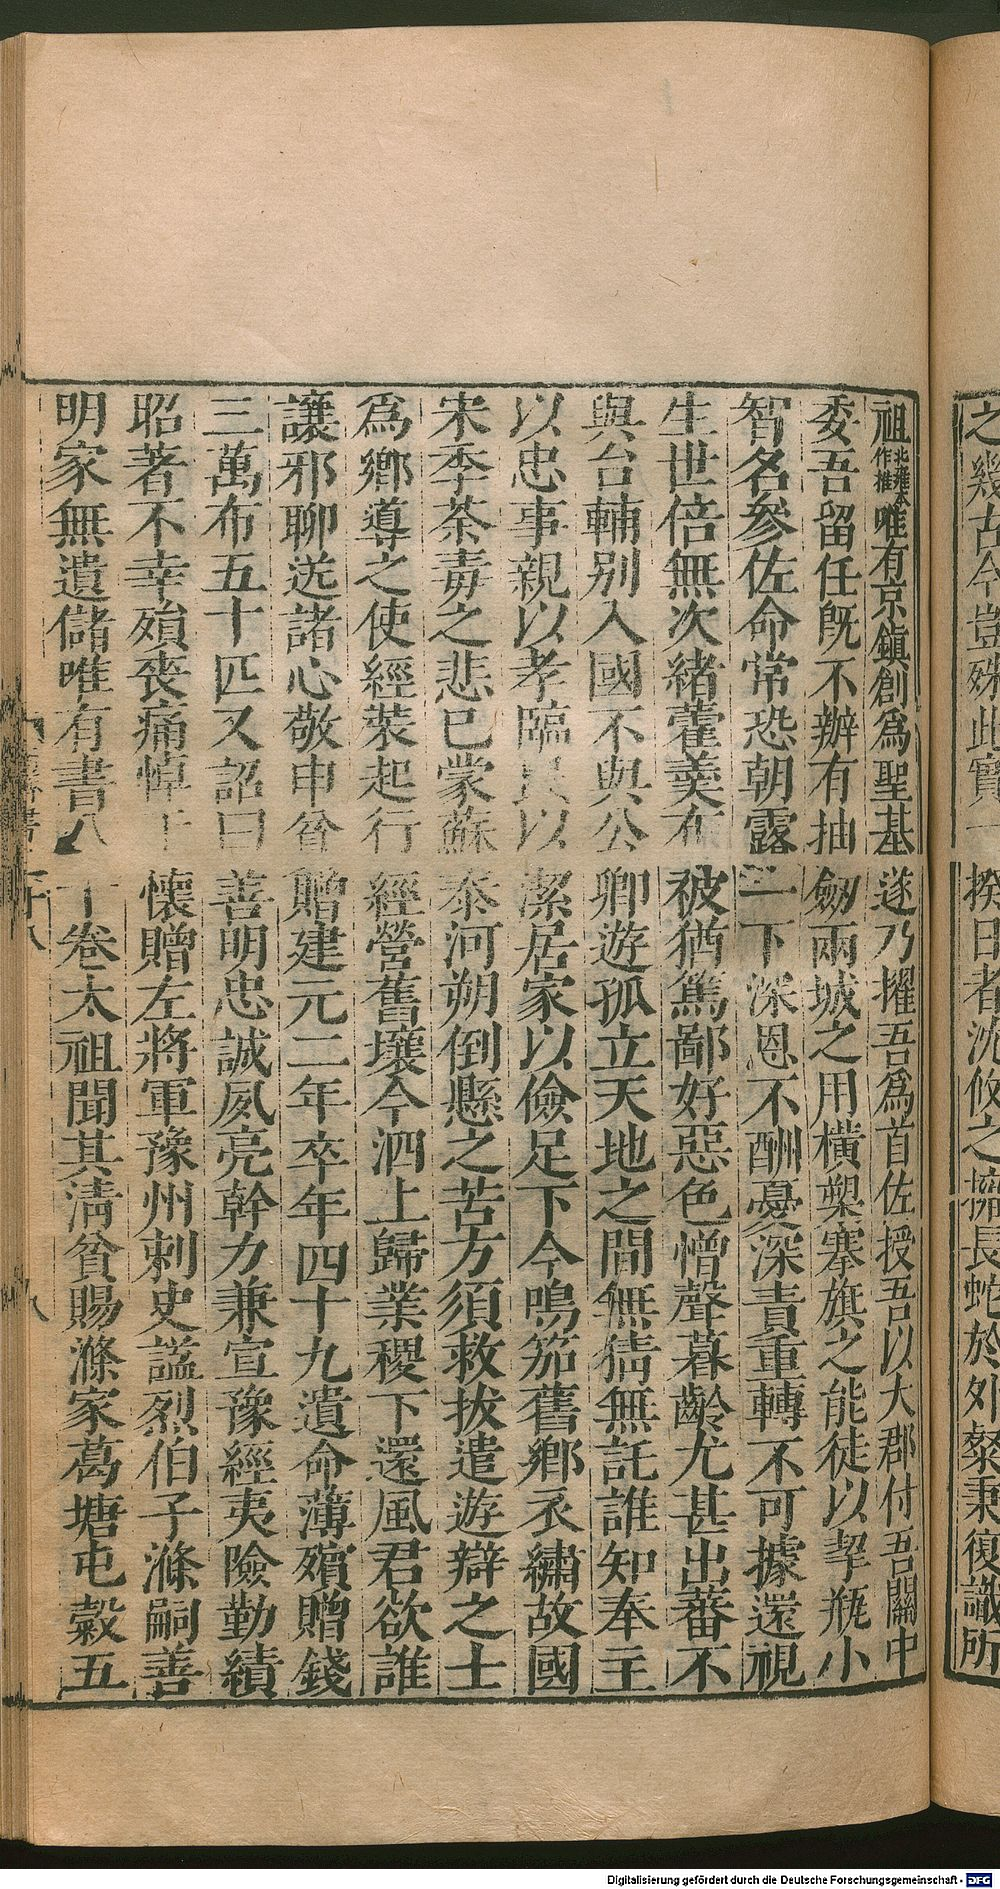 之幾古今豈殊此實一揆日者沈攸之擁長蛇於外粲秉復識所
祖北雍本作推唯有京鎮創爲聖基遂乃擢吾爲首佐授吾以大郡付吾關中
委吾留任旣不辦有抽劒兩城之用橫槊搴旗之能徒以挈瓶小
智名參佐命常恐朝露一下深恩不酬憂深責重轉不可據還視
生世倍無次緒藿羹布被猶篤鄙好惡色憎聲暮齡尤甚出蕃不
與台輔别入國不與公卿遊孤立天地之間無猜無託誰知奉主
以忠事親以孝臨民以潔居家以儉足下今鳴笳舊鄉衣繡故國
宋季荼毒之悲已蒙蘇泰河朔倒懸之苦方須救拔遣遊辯之士
爲鄉導之使經裝起行經營舊壤今泗上歸業稷下還風君欲誰
讓邪聊送諸心敬申貧贈建元二年卒年四十九遺命薄殯贈錢
三萬布五十匹又詔曰善明忠誠夙亮幹力兼宣豫經夷險勤績
昭著不幸殞喪痛悼于懷贈左將軍豫州刺史謚烈伯子滌嗣善
明家無遺儲唯有書八千卷太祖聞其淸貧賜滌家葛塘屯穀五
Digitalisierung gefördert durch die Deutsche Forschungsgemeinschaft - DFG